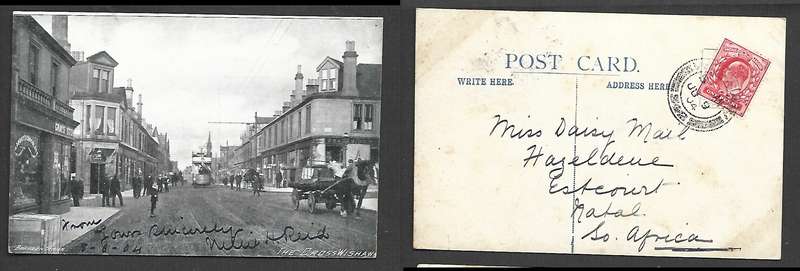 From
Yours Sincerely
8-6-04
THE CROSS WISHAW
POST CARD.
WRITE HERE.
ADDRESS HERE
Miss Daisy Mail
Hazeldene
Estcourt
Natal.
So. Africa